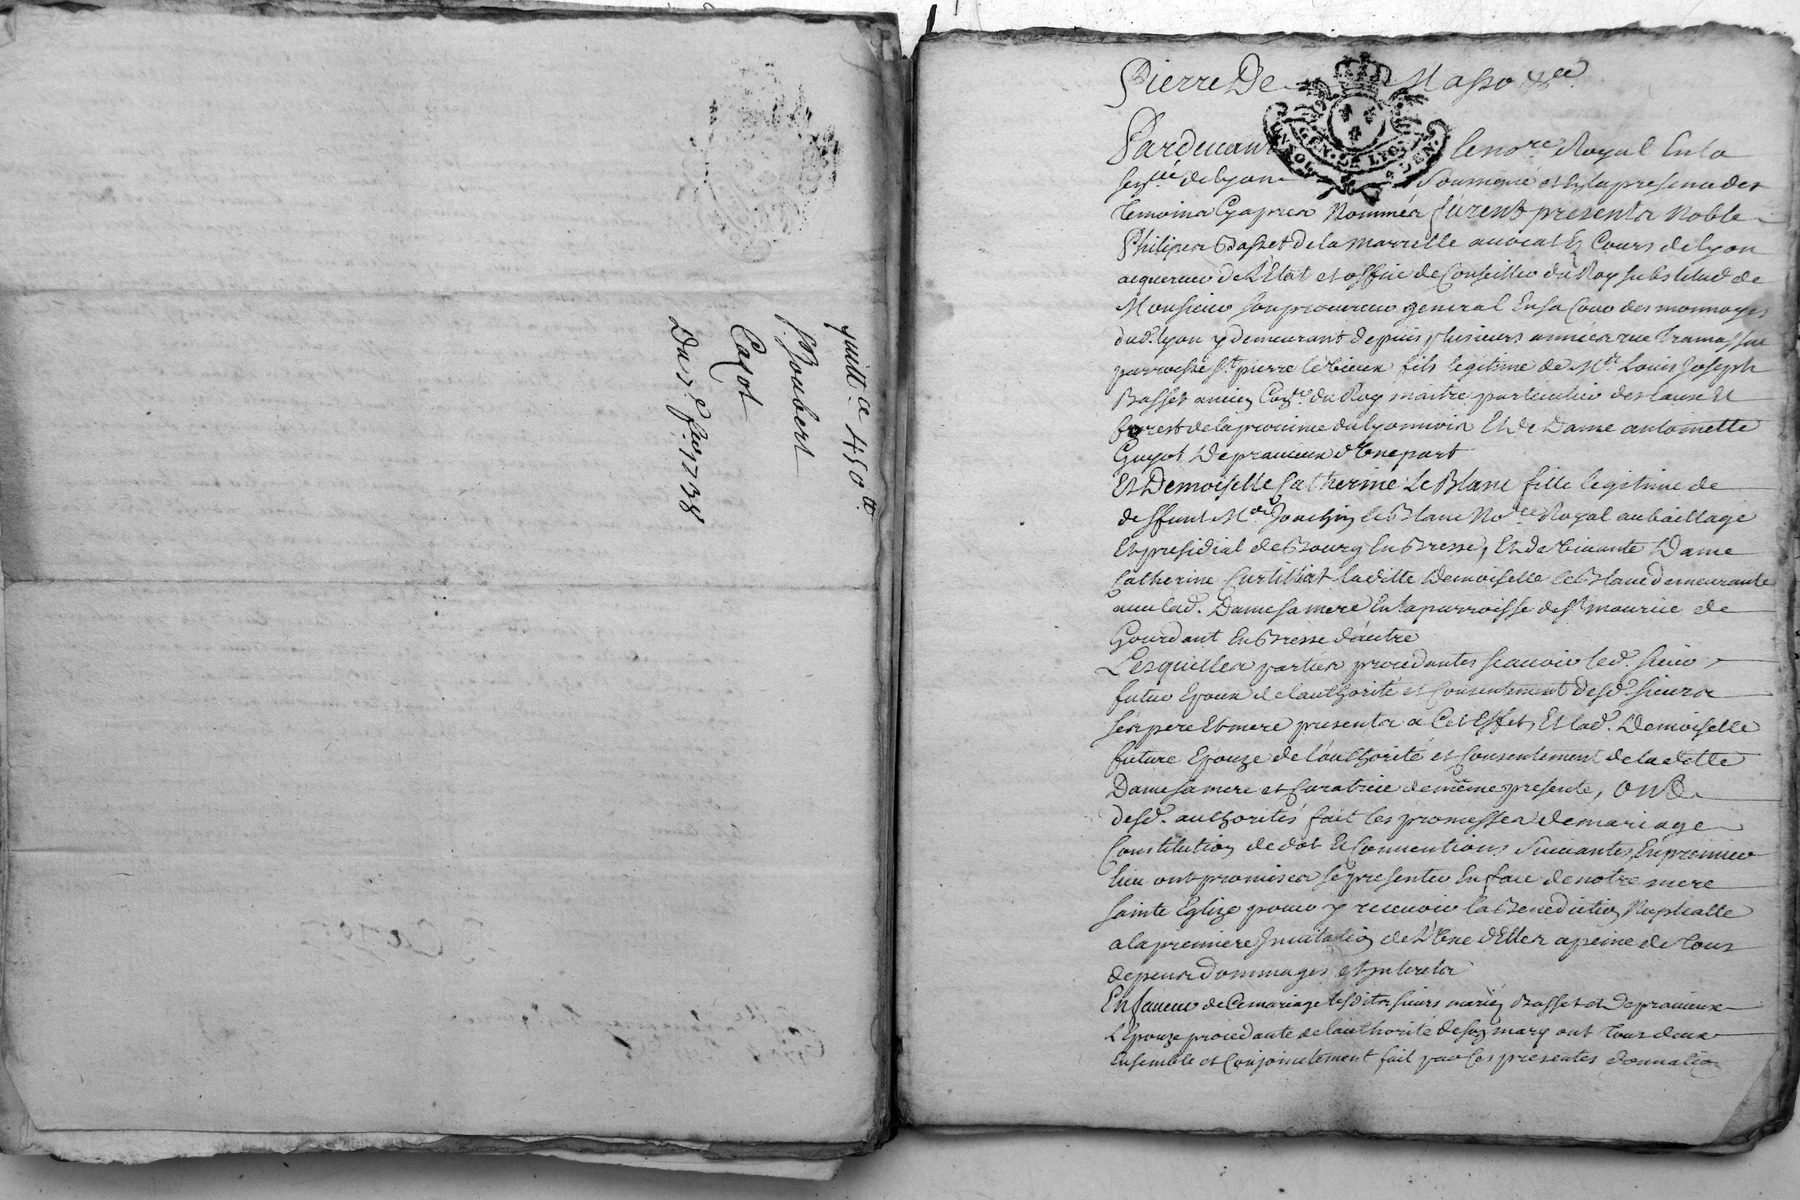 quitt.ce 450 tt
Joubert
Cajot
Du 7e feu. 1738
Pierre De Masso &ce
GEN. DE LYON
Pardeuant le no.re Royal En la
sen.ée de lyon Soussigné et En la presence des
temoins Cy apres Nommés furent presents Noble
Philipes Basset de la marrelle auocat Es Cours de lyon
acquereur de L'Etat et office de Conseiller du Roy substitud de
Monsieur son procureur general En sa Cour des monnoyes
dud. lyon y demeurant depuis plusieurs années rue Tramassac
parroisse St. pierre le vieux fils legitime de Mre. Louis Joseph
Basset ancien Con.er du Roy maitre particulier des Eaux Et
forest de la prouince du lyonnois Et de Dame antoinette
Guyot De prauieux d'Une part
Et Demoiselle Catherine Le Blanc fille legitime de
deffunt Me. Joachin le Blanc No.re Royal au bailliage
Et presidial de Bourg En Bresse, Et de viuante Dame
Catherine Curtilliat laditte Demoiselle le Blanc demeurante
auec lad. Dame sa mere En la parroisse de St. maurice de
Gourdant En Bresse d'autre
Lesquelles parties procedantes scauoir led. sieur
futur Epoux de l'authorité et Consentement desd. sieurs
ses pere Et mere presents a Cet Effet, Et lad. Demoiselle
future Epouze de l'authorité et Consentement de laditte
Dame sa mere et Curatrice de même presente, ont
desd. authorités fait les promesses de mariage
Constitution de dot Et Conuentions Suiuantes, En premier
lieu ont promis se presenter En face de notre mere
Sainte Eglize pour y receuoir la Benediction Nuptialle
a la premiere Inuitation de L'Une d'Elles a peine de tous
depens Dommages et Interets
En faueur de Ce mariage lesdits sieurs mariés Basset et De prauieux
L'Epouze procedante de l'authorité de son mary ont tous deux
Ensemble et Conjointement fait par Ces presentes donnation